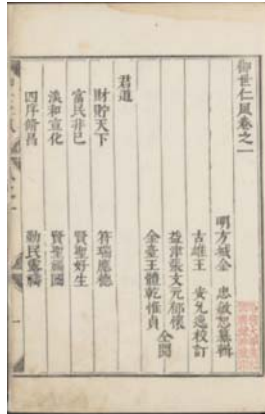 御世仁風卷之一
明方城金 忠敏恕纂輯
古雄王 安允逸校訂
益津張文元郁懷
金臺王體乾惟貞 仝閱
君道
財貯天下 符瑞應德
富民非己 賢聖好生
和宣化 賢聖福國
四序脩昌 勤民露禱